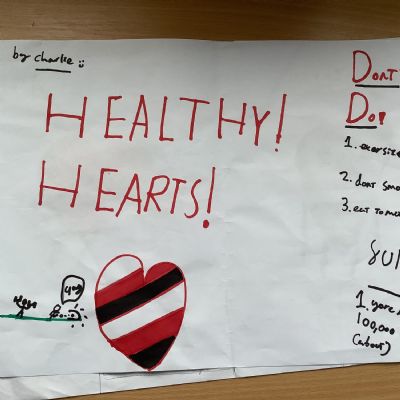 by charlie
HEALTHY!
HEARTS!
DONT
Do!
1. exersize
2. dont smo
3. eat to mu
SU
1. your
100,000
(about)